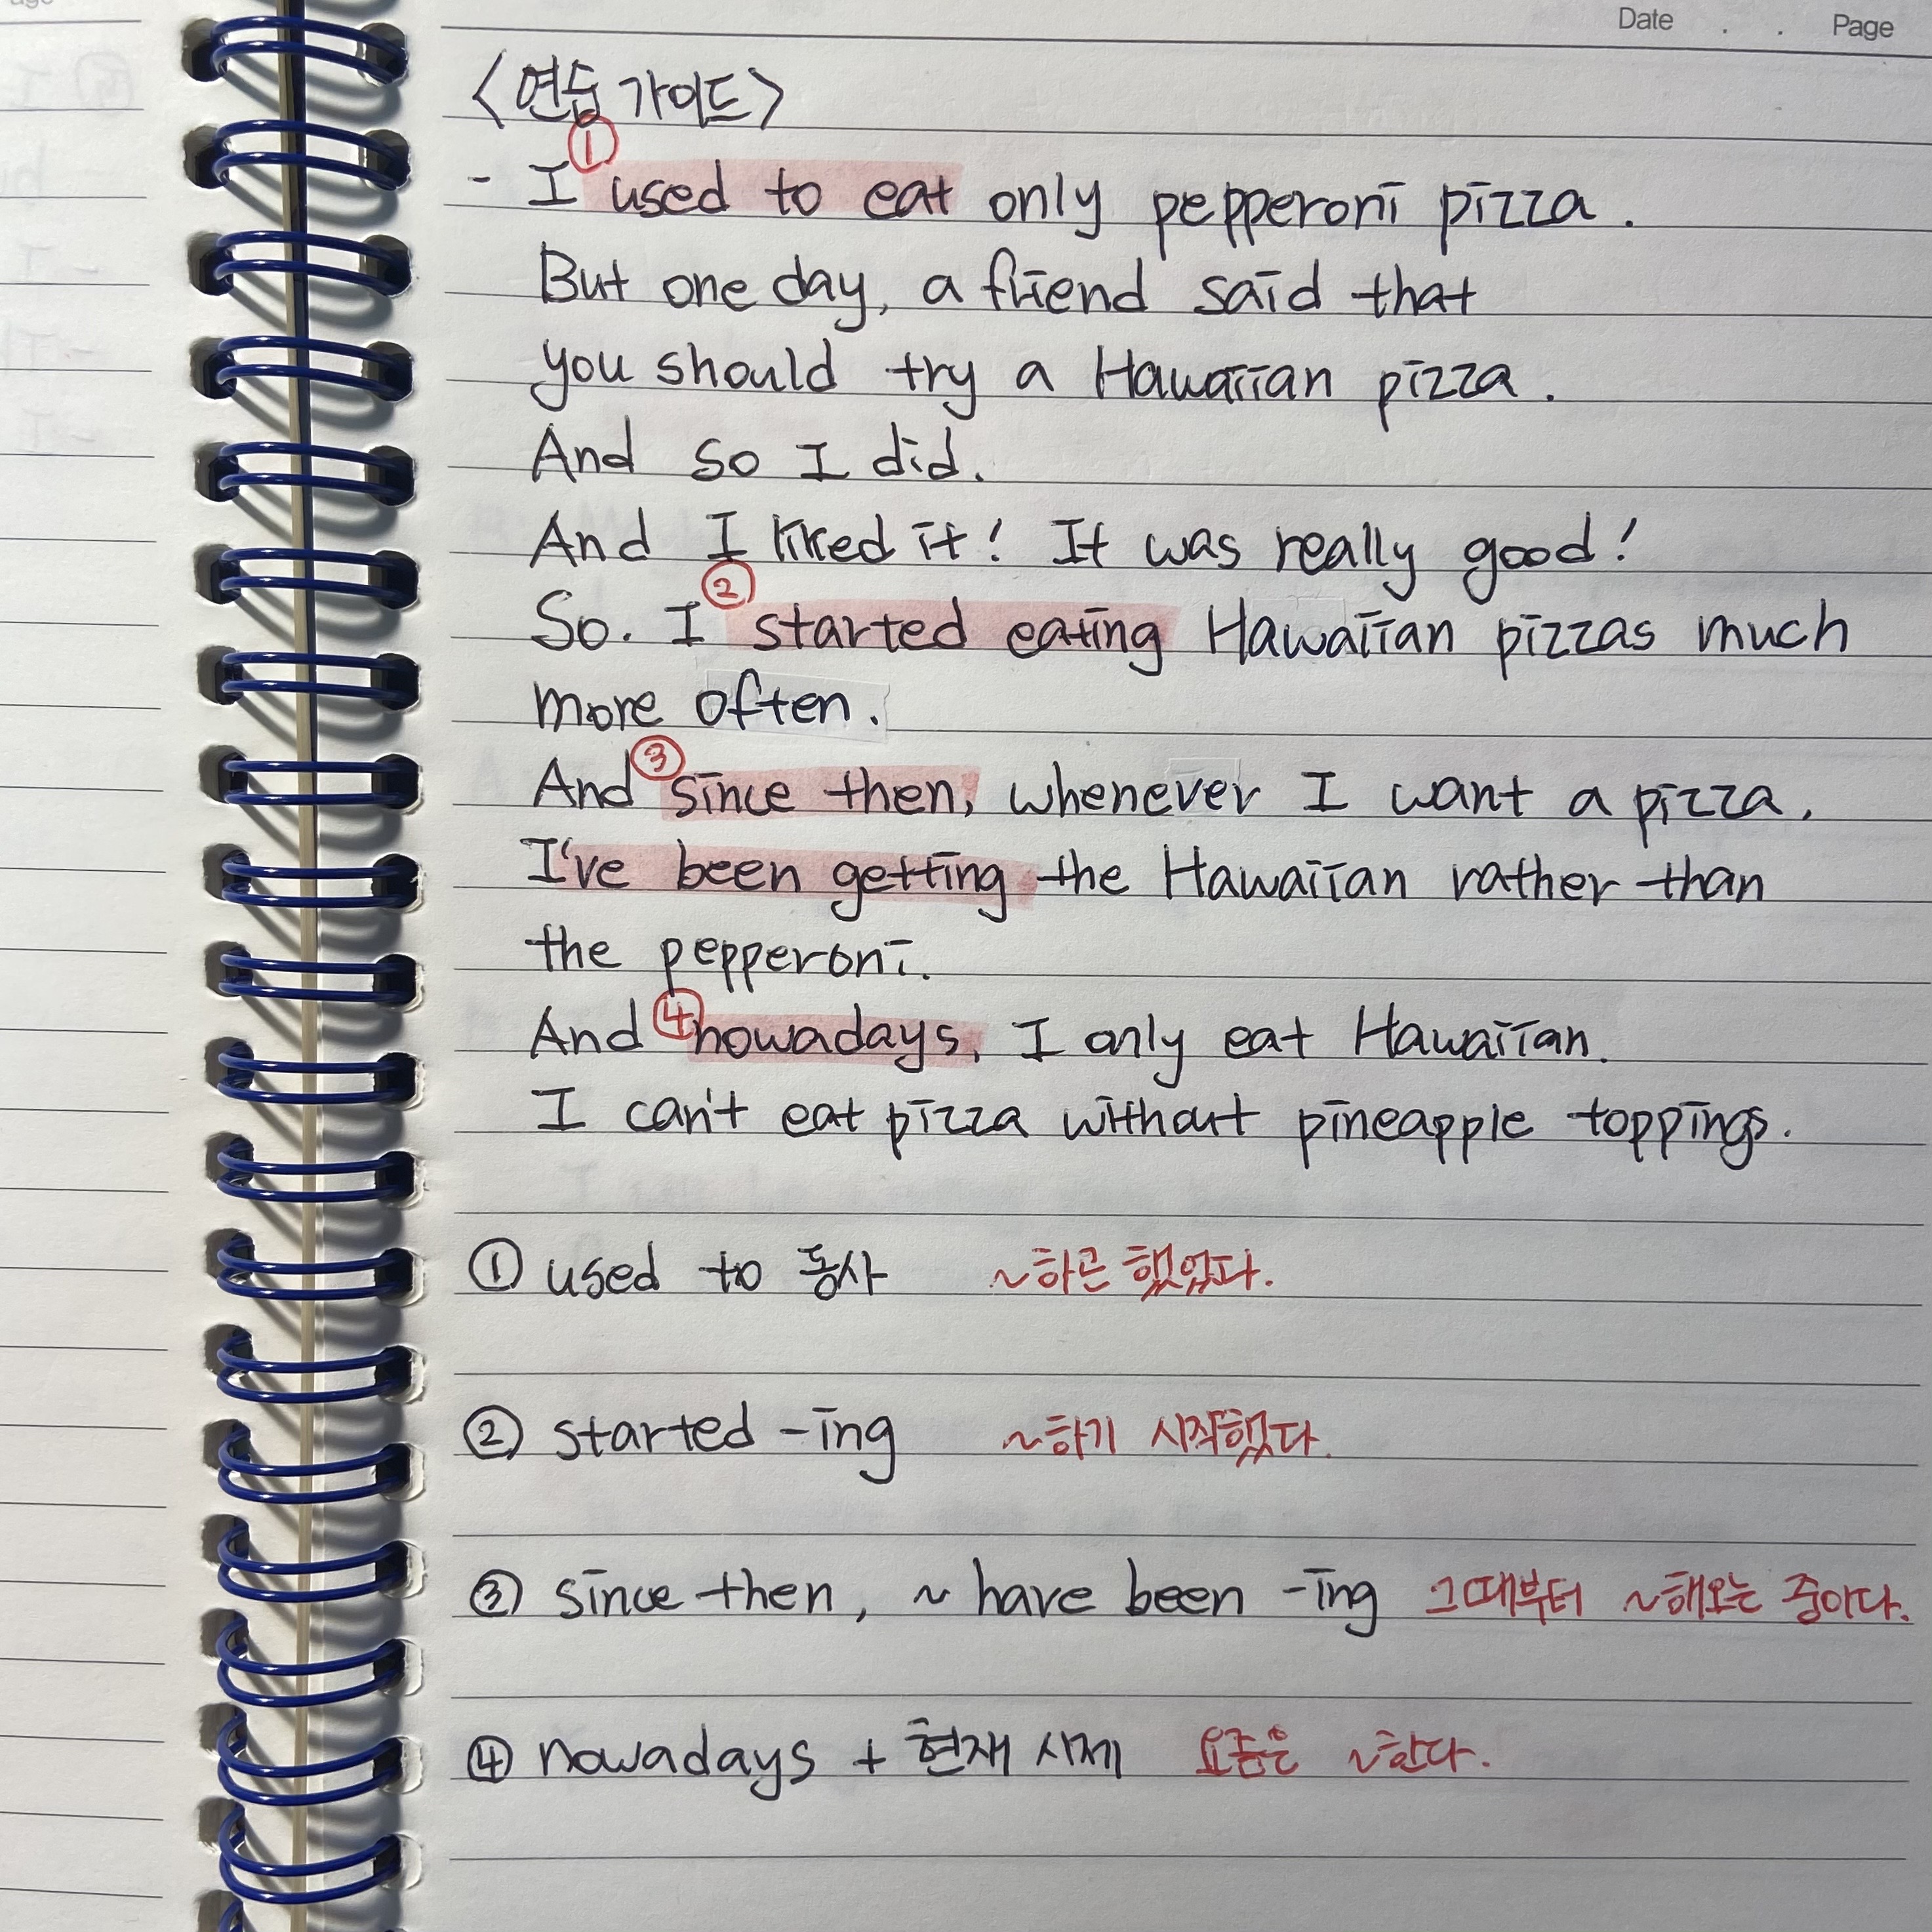 Date . . Page
<연습 가이드>
①
- I used to eat only pepperoni pizza.
But one day, a friend said that
you should try a Hawaiian pizza.
And so I did.
And I liked it! It was really good!
②
So. I started eating Hawaiian pizzas much
more often.
③
And since then, whenever I want a pizza,
I've been getting the Hawaiian rather than
the pepperoni.
And ④ nowadays, I only eat Hawaiian.
I can't eat pizza without pineapple toppings.
① used to 동사 ~하곤 했었다.
② started -ing ~하기 시작했다.
③ since then, ~ have been -ing 그때부터 ~해오는 중이다.
④ nowadays + 현재 시제 요즘은 ~한다.